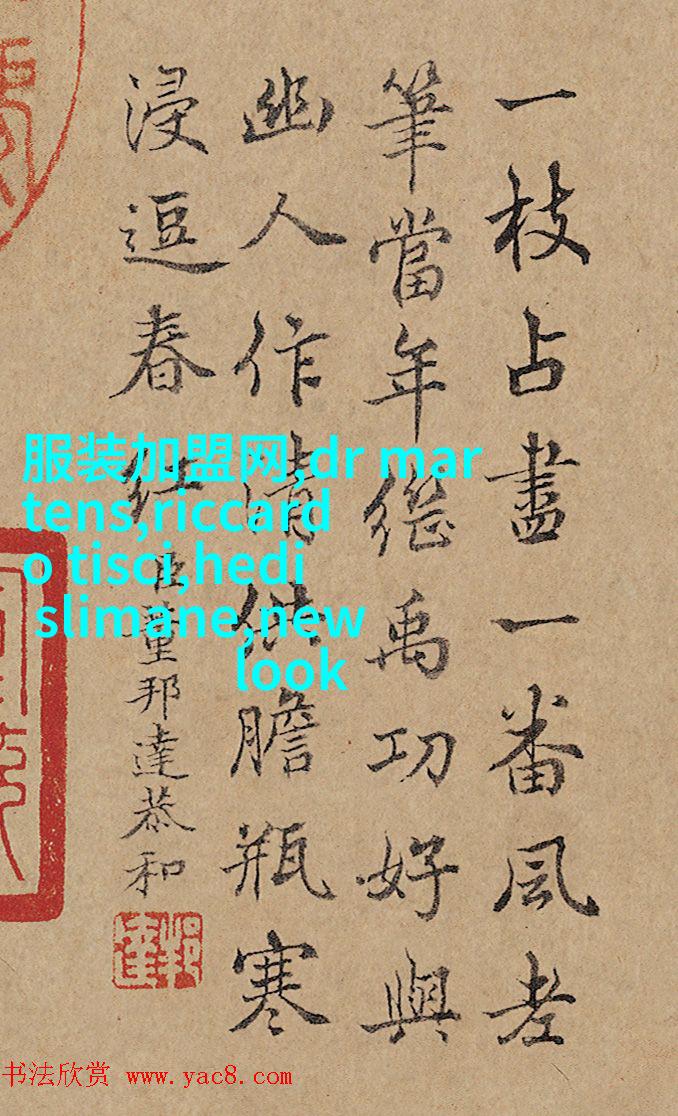 一枝占盡一番風老
筆當年繼禹功好與
幽人作清供膽瓶寒
浸逗春紅 臣董邦達恭和
邦達
服装加盟网,dr mar
tens,riccard
o tisci,hedi
slimane,new
look
书法欣赏 www.yac8.com